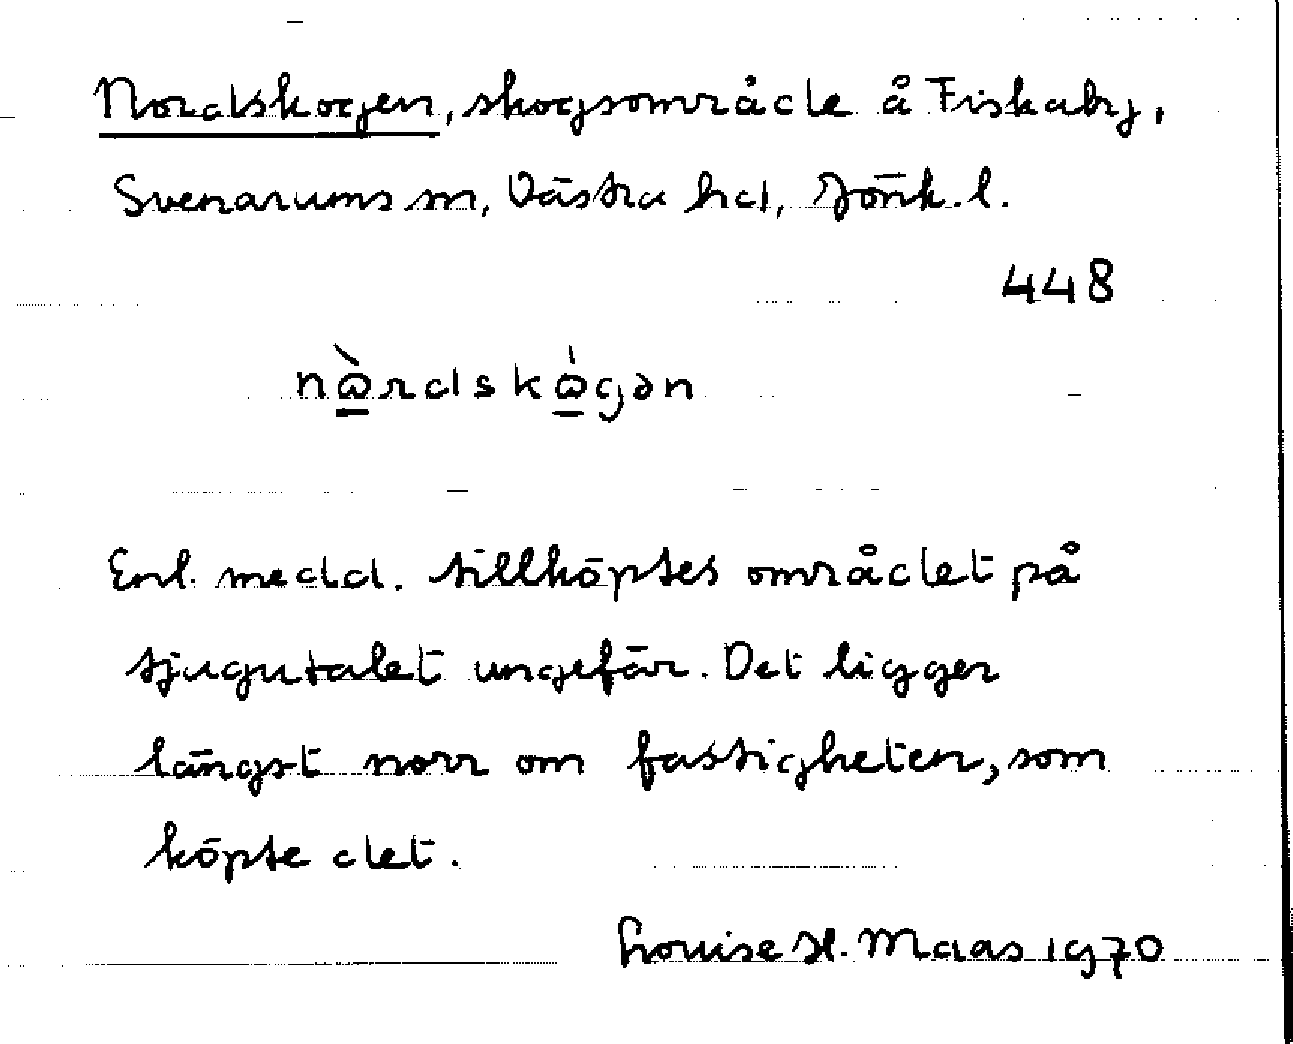 Nordskogen, skogsområde å Fiskaby,
Svenarums sn, Västra hd, Jönk. l.
448
nὼ̲rdskώ̲gən
Enl. medd. tillköptes området på
tjugutalet ungefär. Det ligger
längst norr om fastigheten, som
köpte det.
Louise H. Maas 1970